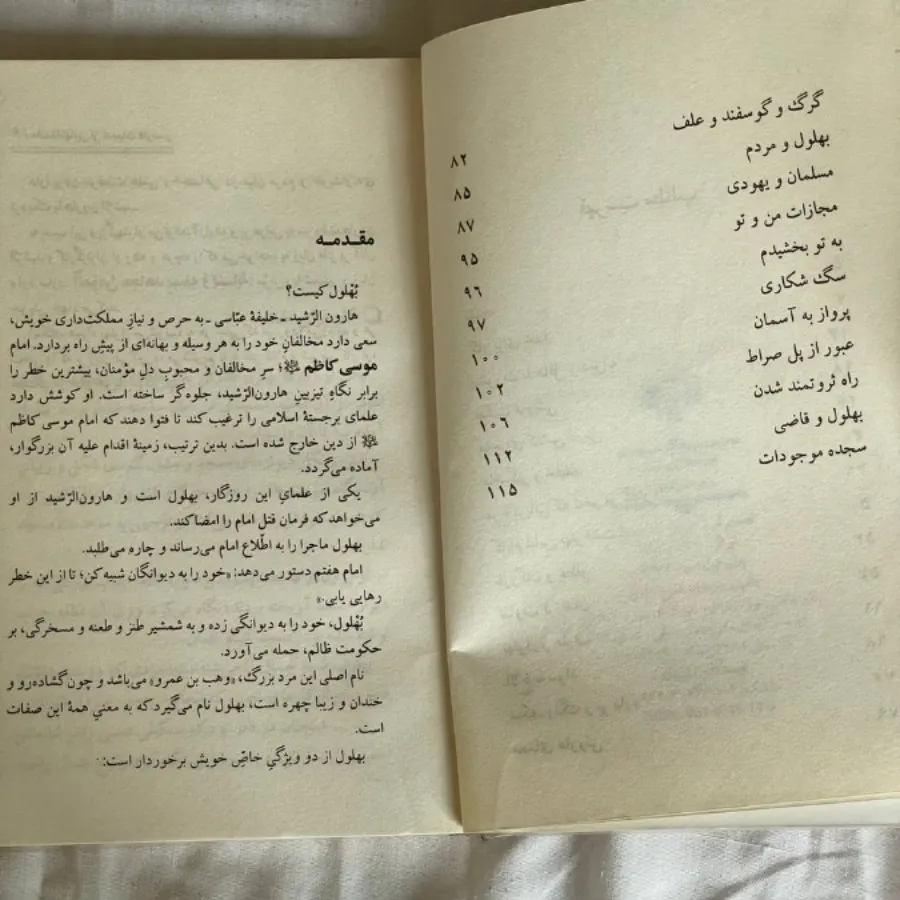 گرگ و گوسفند و علف ۸۲
بهلول و مردم ۸۵
مسلمان و یهودی ۸۷
مجازات من و تو ۹۵
به تو بخشیدم ۹۶
سگ شکاری ۹۷
پرواز به آسمان ۱۰۰
عبور از پل صراط ۱۰۲
راه ثروتمند شدن ۱۰۶
بهلول و قاضی ۱۱۲
سجده موجودات ۱۱۵
مقدمه
بُهْلول کیست؟
هارون الرّشید ـ خلیفهٔ عبّاسی ـ به حرص و نیازِ مملکت‌داری خویش،
سعی دارد مخالفانِ خود را به هر وسیله و بهانه‌ای از پیشِ راه بردارد. امام
موسی کاظم ﷷ؛ سرِ مخالفان و محبوبِ دلِ مؤمنان، بیشترین خطر را
برابر نگاهِ تیزبینِ هارون‌الرّشید، جلوه‌گر ساخته است. او کوشش دارد
علمای برجستهٔ اسلامی را ترغیب کند تا فتوا دهند که امام موسی کاظم
از دین خارج شده است. بدین ترتیب، زمینهٔ اقدام علیه آن بزرگوار،
آماده می‌گردد.
یکی از علمایِ این روزگار، بهلول است و هارون‌الرّشید از او
می‌خواهد که فرمان قتل امام را امضا کند.
بهلول ماجرا را به اطّلاع امام می‌رساند و چاره می‌طلبد.
امام هفتم دستور می‌دهد: «خود را به دیوانگان شبیه کن؛ تا از این خطر
رهایی یابی.»
بُهْلول، خود را به دیوانگی زده و به شمشیر طنز و طعنه و مسخرگی، بر
حکومت ظالم، حمله می‌آورد.
نام اصلی این مرد بزرگ، «وهب بن عمرو» می‌باشد و چون گشاده‌رو و
خندان و زیبا چهره است، بهلول نام می‌گیرد که به معنیِ همهٔ این صفات
است.
بهلول از دو ویژگیِ خاصِّ خویش برخوردار است: